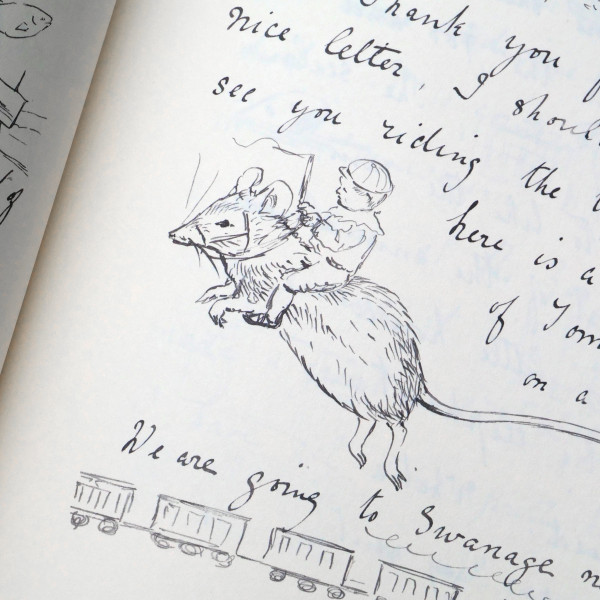 Thank you
nice letter, I
see you riding the
here is a
of Tom
on a
We are going to Swanage